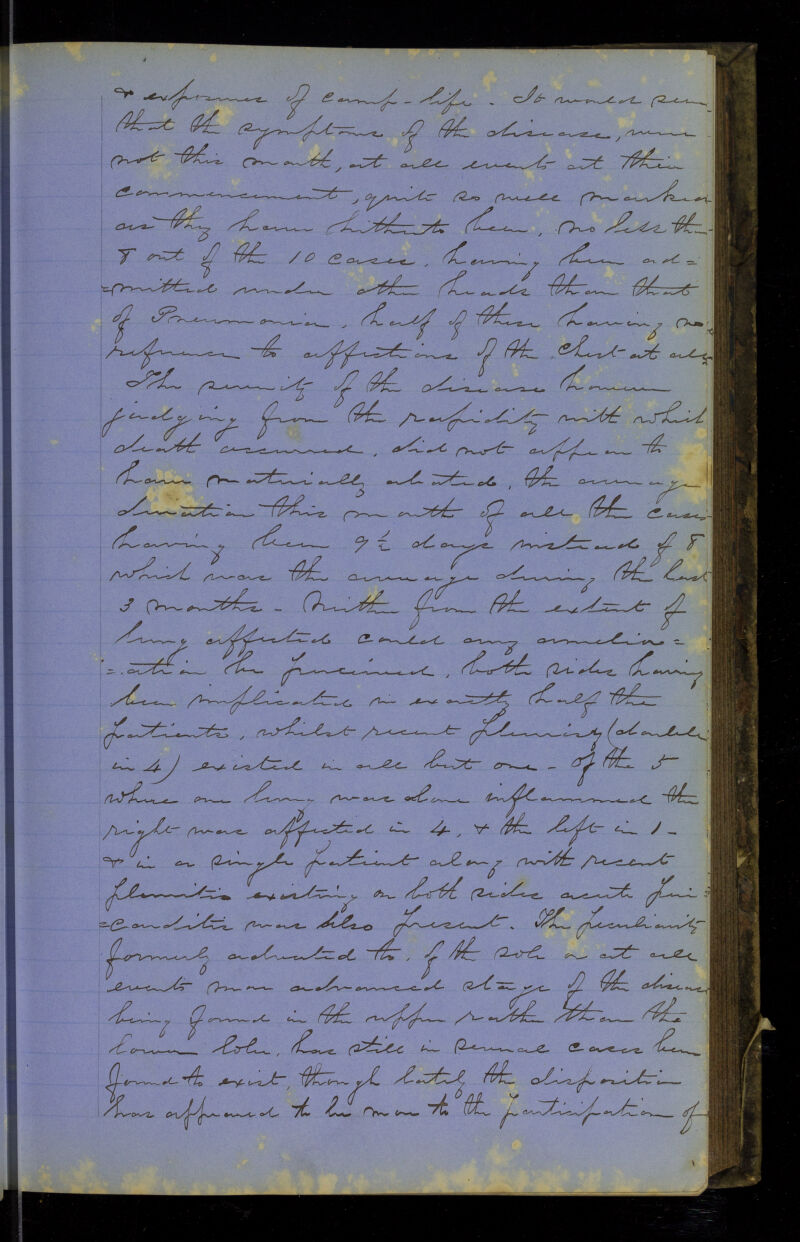 & exposures of camp-life. It would seem
that the symptoms of the disease, were
not this month, at all events at their
commencement, quite so well marked
as they have hitherto been, no less than
8 out of the 10 cases, having been ad=
=mitted under other heads than that
of Pneumonia, half of these having no
reference to affections of the Chest at all.
The severity of the disease however
judging from the rapidity with which
death occurred, did not appear to
have materially abated, the average
duration this month of all the cases
having been 9½ days instead of 8
which was the average during the last
3 months - Neither from the extent of
lung affected could any amelior=
=ation be perceived, both sides having
been implicated in exactly half the
patients, whilst recent pleurisy (double
in 4) existed in all but one - Of the 5
where one lung was alone inflammed the
right was affected in 4, & the left in 1 -
& in a single patient along with recent
pleuritis existing on both sides acute peri=
=carditis was also present. The peculiarity
formerly adverted to, of the sole or at all
events more advanced stage of the disease
being found in the upper rather than the
lower lobe, has still in several cases been
found to exist, though lately the disposition
has appeared to be more to the participation of